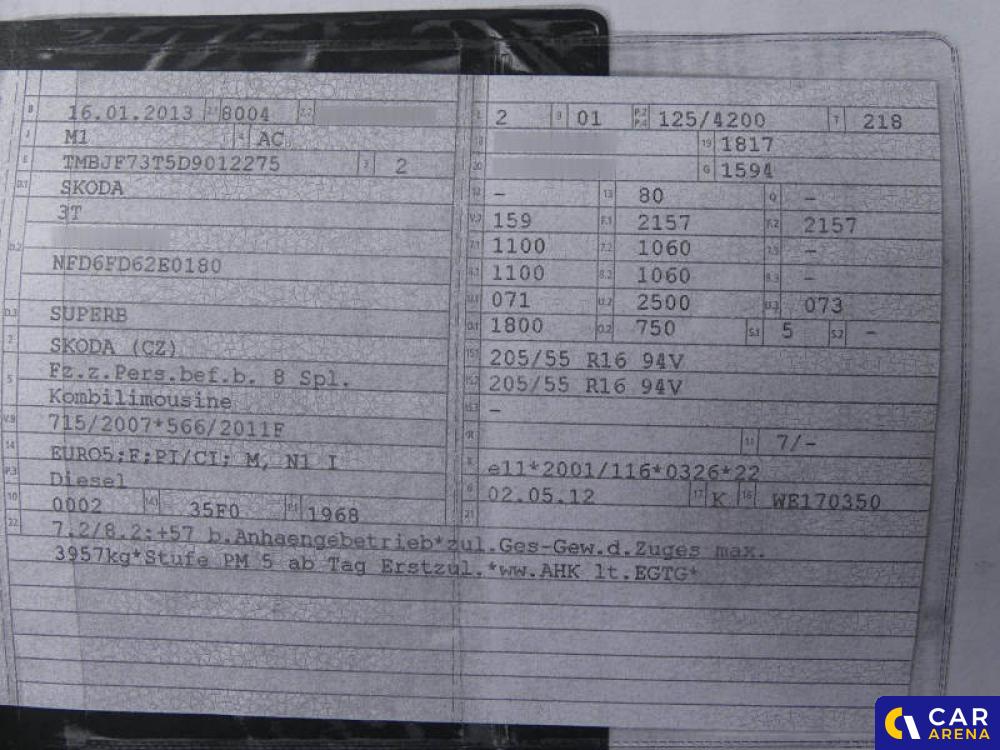 B 16.01.2013 2.1 8004 2.2
J M1 4 AC
E TMBJF73T5D9012275 3 2
D.1 SKODA
3T
D.2
NFD6FD62E0180
D.3 SUPERB
2 SKODA (CZ)
5 Fz.z.Pers.bef.b. 8 Spl.
Kombilimousine
V.9 715/2007*566/2011F
14 EURO5;F;PI/CI; M, N1 I
P.3 Diesel
10 0002 14.1 35F0 P.1 1968
L 2 9 01 P.2 P.4 125/4200 T 218
18 19 1817
20 G 1594
12 - 13 80 Q -
V.7 159 F.1 2157 F.2 2157
7.1 1100 7.2 1060 7.3 -
8.1 1100 8.2 1060 8.3 -
U.1 071 U.2 2500 U.3 073
O.1 1800 O.2 750 S.1 5 S.2 -
15.1 205/55 R16 94V
15.2 205/55 R16 94V
15.3 -
R 11 7/-
K e11*2001/116*0326*22
6 02.05.12 17 K 16 WE170350
21
22 7.2/8.2:+57 b.Anhaengebetrieb*zul.Ges-Gew.d.Zuges max.
3957kg*Stufe PM 5 ab Tag Erstzul.*ww.AHK lt.EGTG*
CAR
ARENA